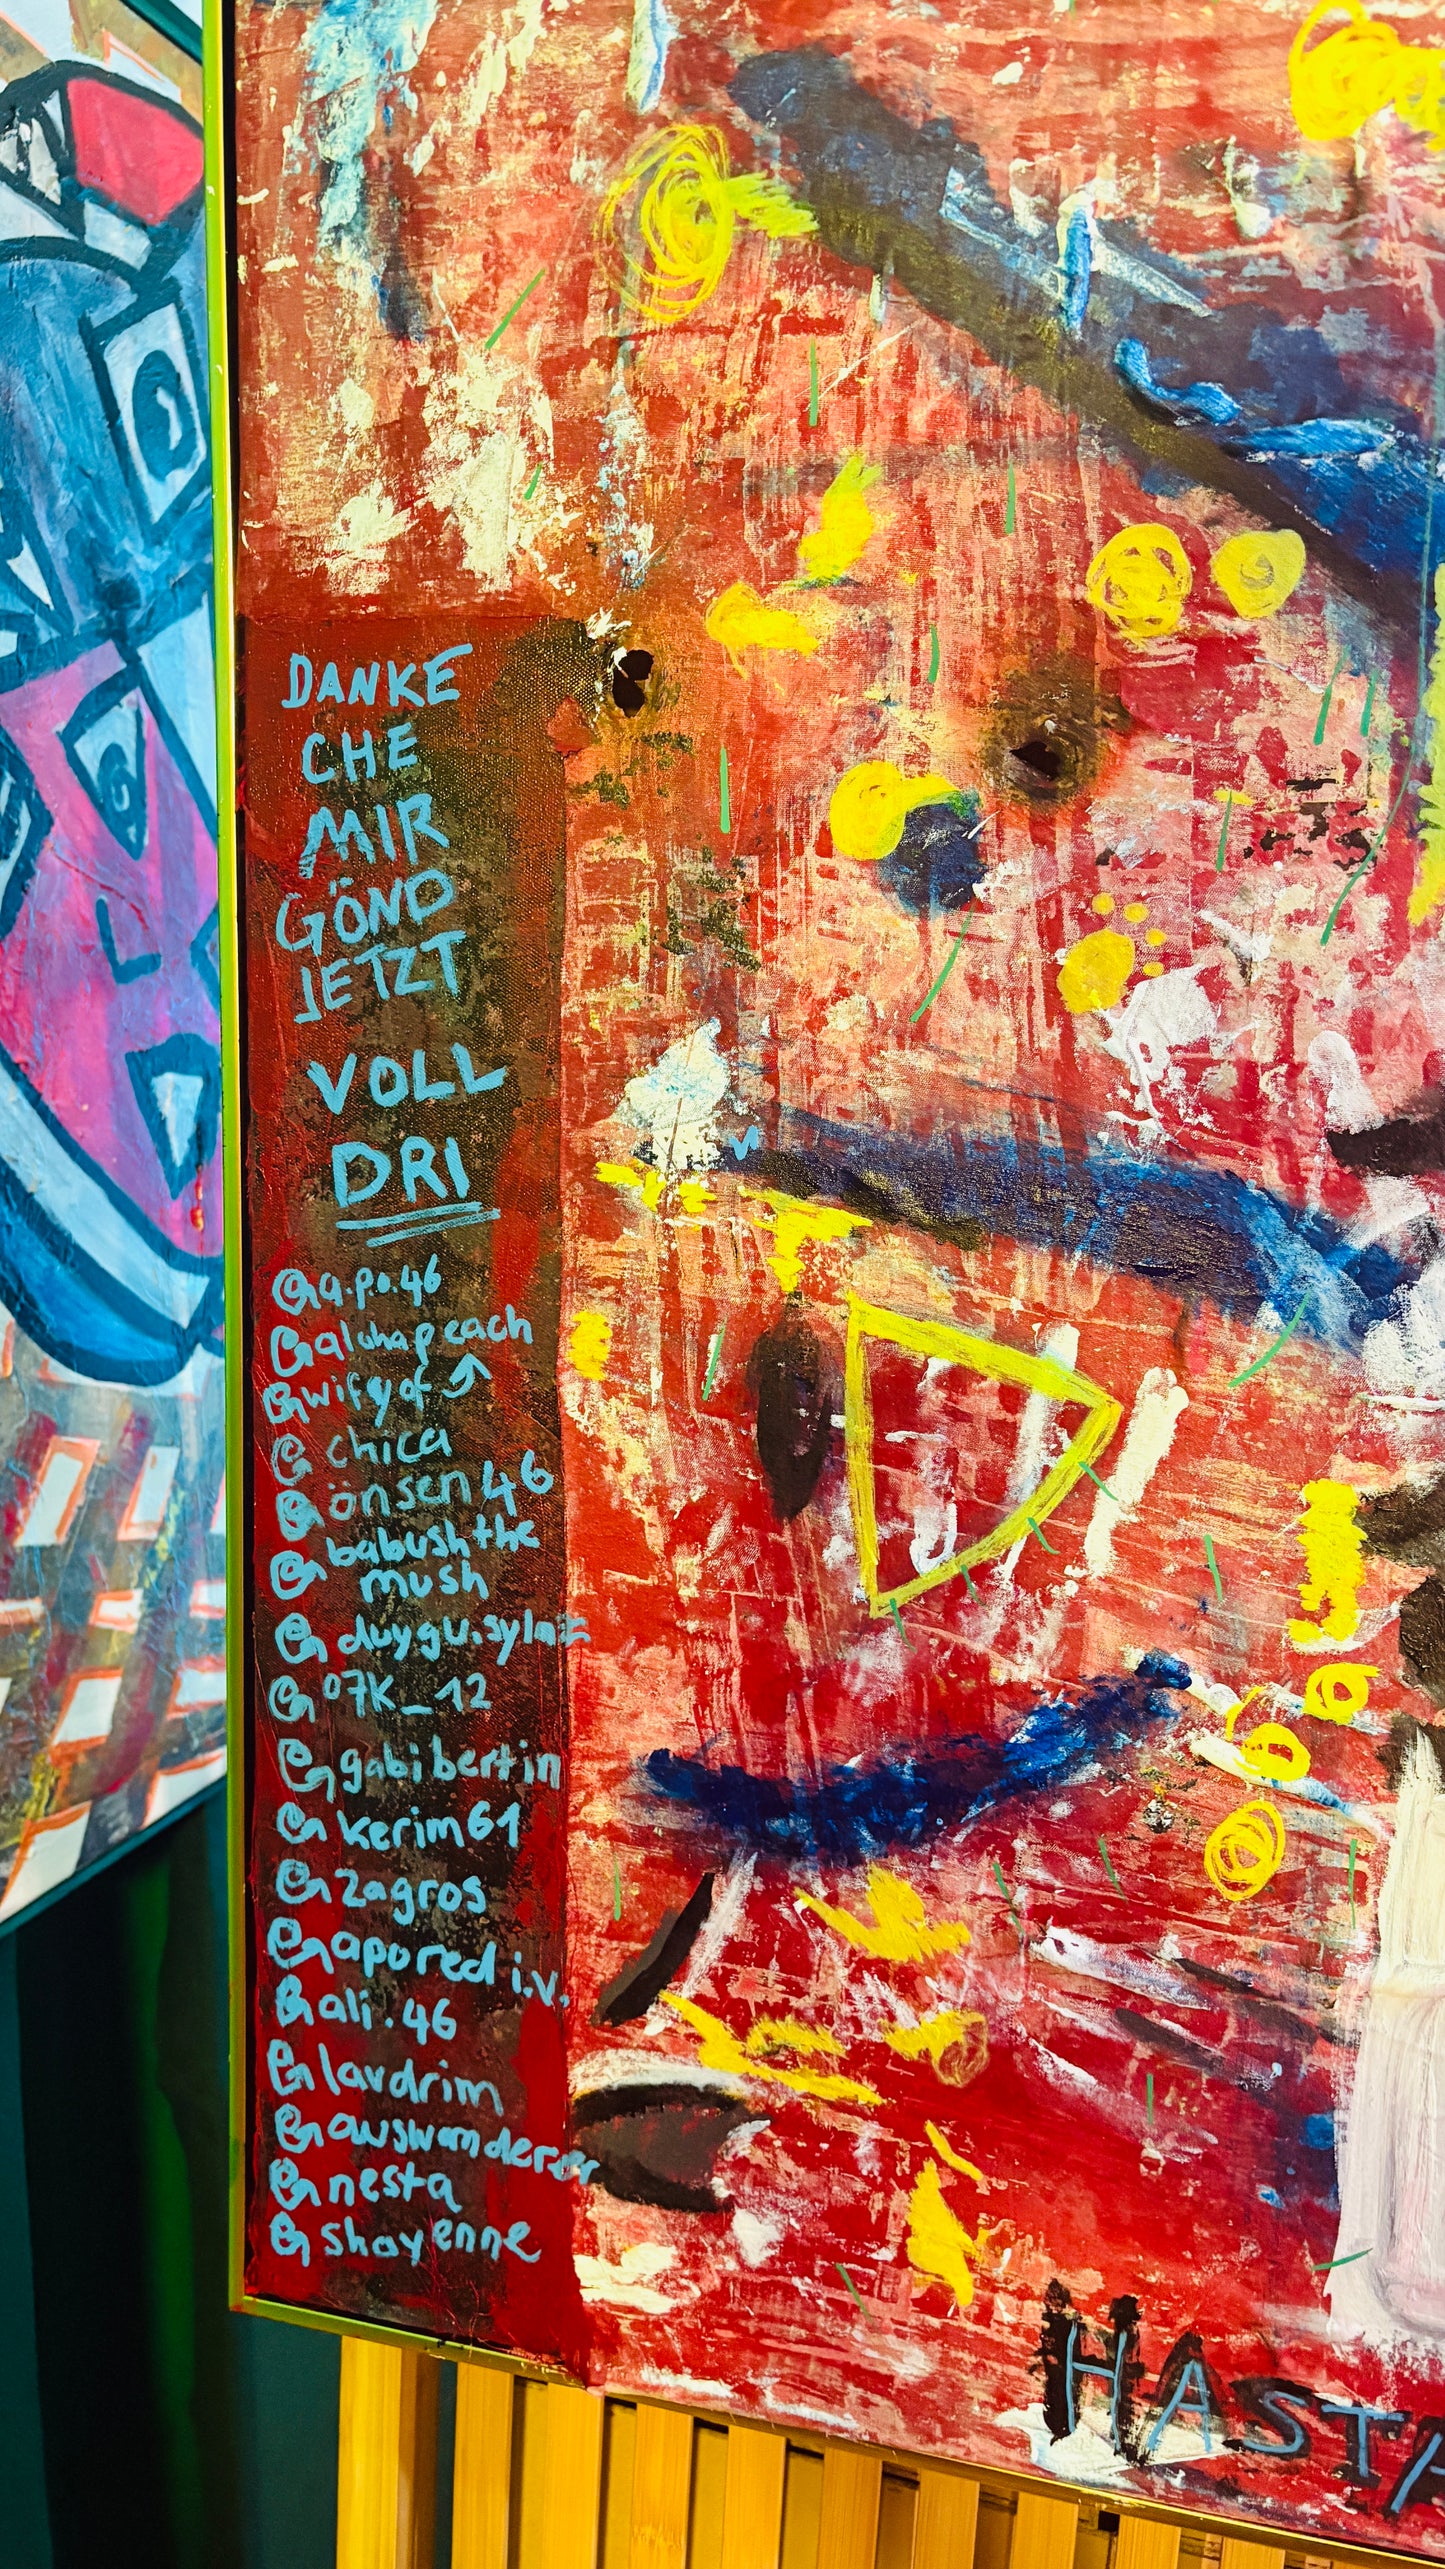 DANKE
CHE
MIR
GÖND
JETZT
VOLL
DRI
@a.p.o.46
@aluhapeach
@wifyof
@chica
@önsen46
@babushthe
mush
@duygu.sylmz
@07K_12
@gabibertin
@kerim61
@zagros
@apored i.v.
@ali.46
@lavdrim
@nesta
@shayenne
HASTA